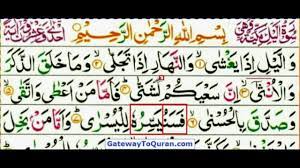 بِسْمِ اللهِ الرَّحْمٰنِ الرَّحِيْمِ
وَ الَّيْلِ اِذَا يَغْشٰى ۙ وَ النَّهَارِ اِذَا تَجَلّٰى ۙ وَ مَا خَلَقَ الذَّكَرَ
وَ الْاُنْثٰۤى ۙ اِنَّ سَعْيَكُمْ لَشَتّٰى ؕ فَاَمَّا مَنْ اَعْطٰى وَ اتَّقٰى ۙ
وَ صَدَّقَ بِالْحُسْنٰى ۙ فَسَنُيَسِّرُهٗ لِلْيُسْرٰى ؕ وَ اَمَّا مَنْۢ بَخِلَ
GatewayToQuran.com